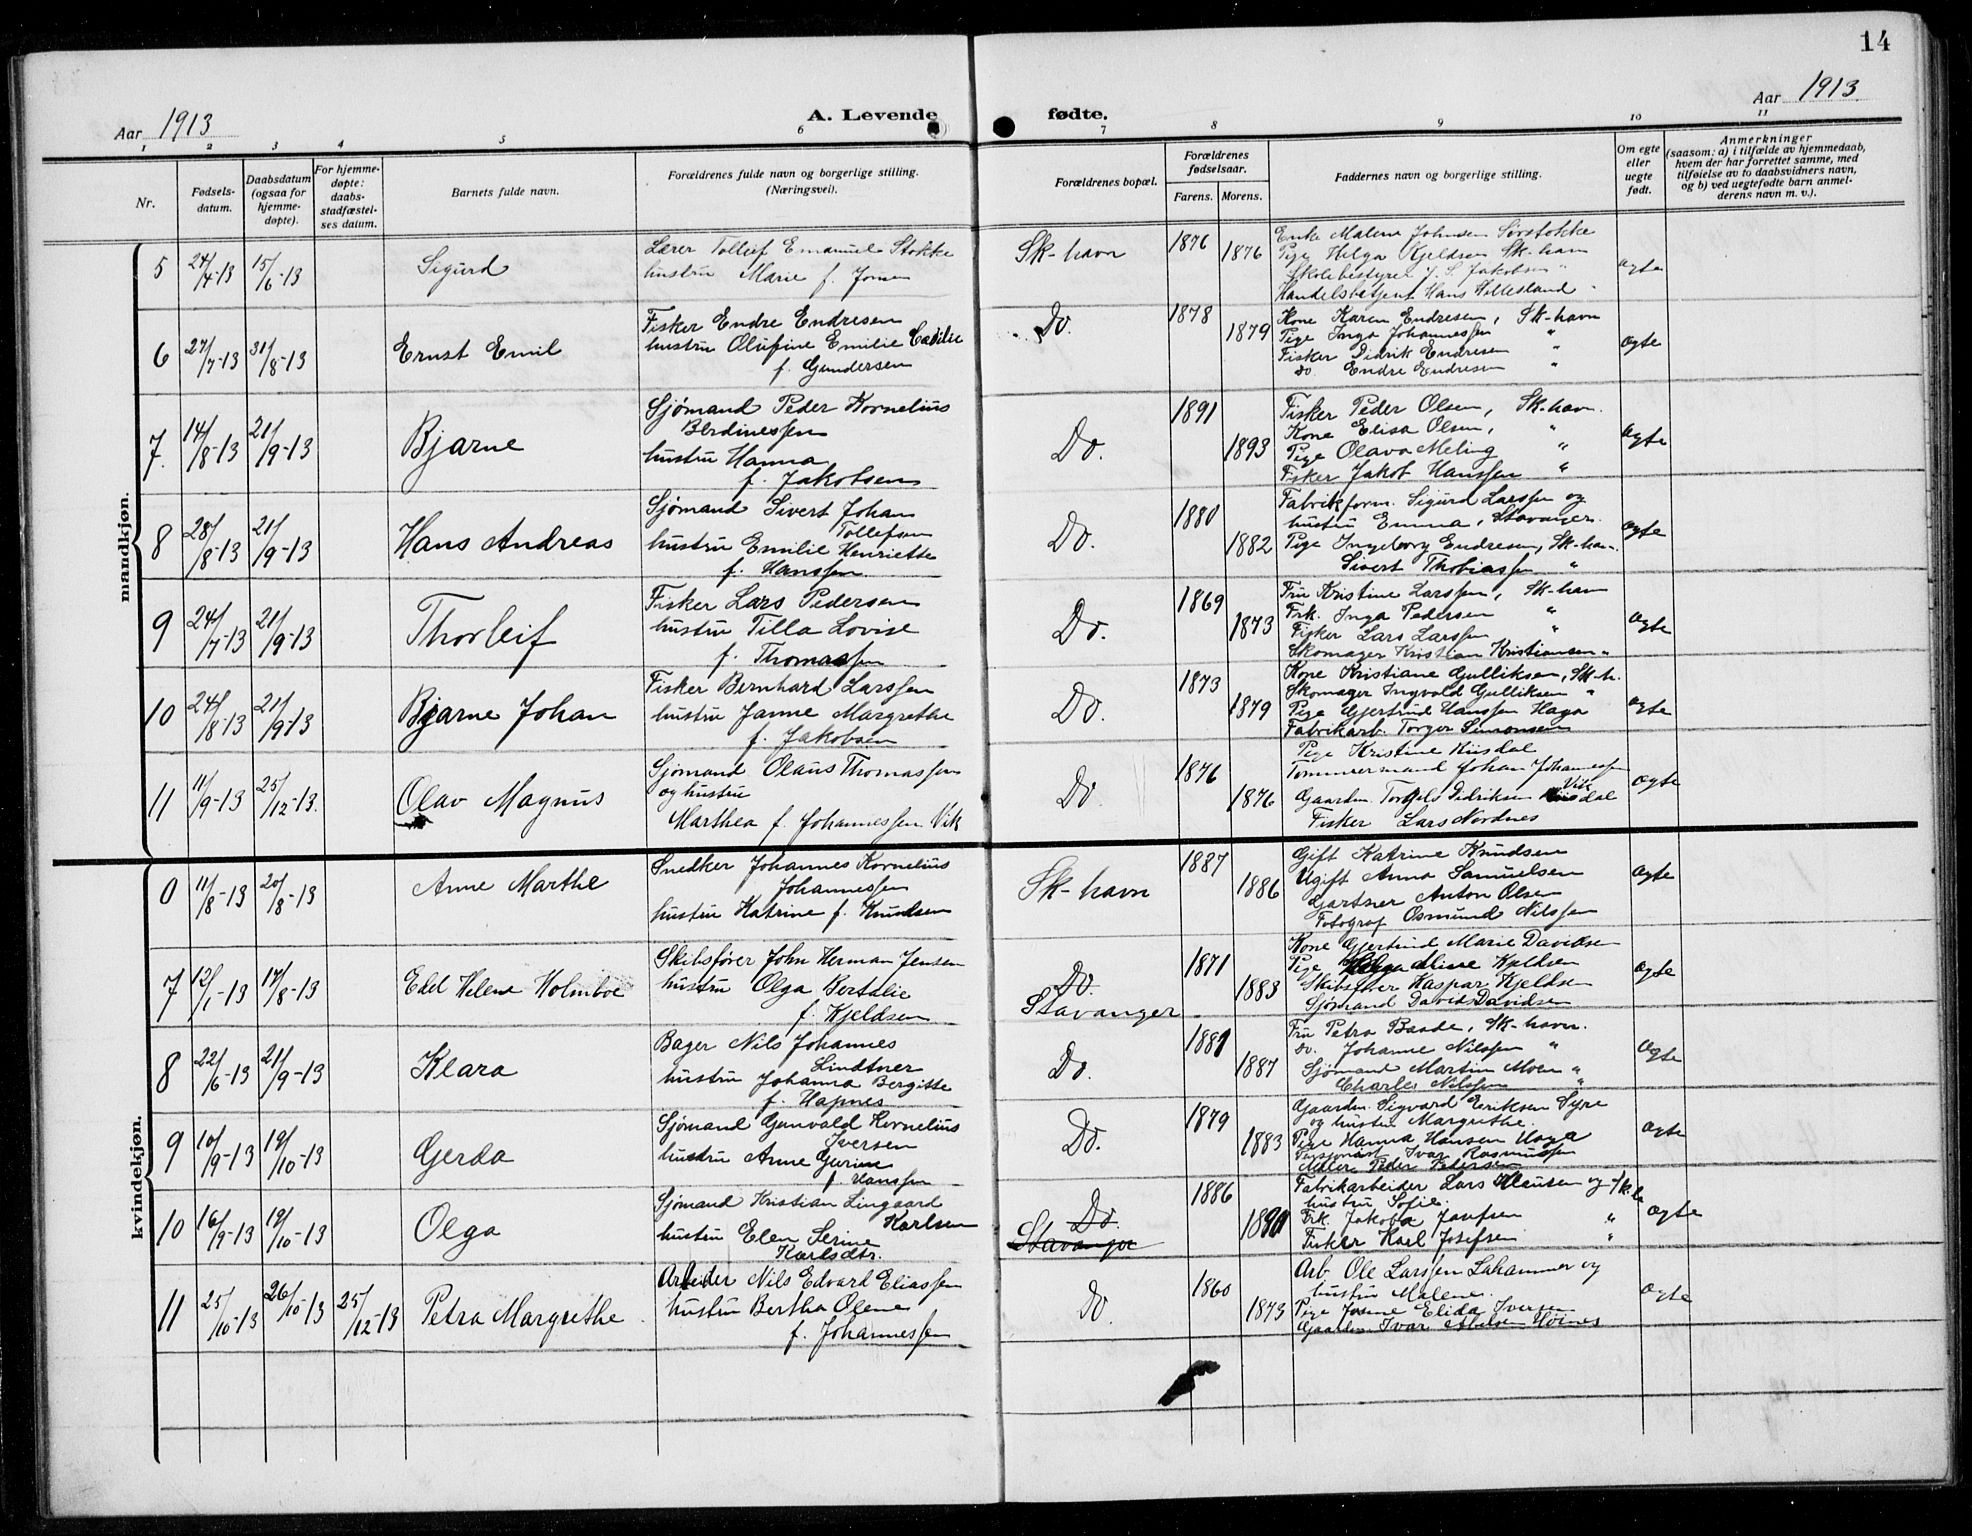 14
Aar 1913
A. Levende fødte.
Aar 1913
1 2 3 4 5 6 7 8 9 10 11
Nr.
Fødsels-
datum.
Daabsdatum
(ogsaa for
hjemme-
døpte).
For hjemme-
døpte:
daabs-
stadfæstel-
ses datum.
Barnets fulde navn.
Forældrenes fulde navn og borgerlige stilling.
(Næringsvei).
Forældrenes bopæl.
Forældrenes
fødselsaar.
Farens. Morens.
Faddernes navn og borgerlige stilling.
Om egte
eller
uegte
født.
Anmerkninger
(saasom: a) i tilfælde av hjemmedaab,
hvem der har forrettet samme, med
tilføielse av to daabsvidners navn,
og b) ved uegtefødte barn anmel-
derens navn m. v.).
mandkjøn.
5 24/4-13 15/6-13 Sigurd
Lærer Tollief Emanuel Stokke
hustru Marie f.
Sk-havn 1876 1876
Enke Malene Johnsen Sørstokke
Pige Helga Kjeldsen Sk-havn
Skolebestyrer J. S. Jakobsen "
Handelsbetjent Hans Hillesland "
ægte
6 27/7-13 31/8-13 Ernst Emil
Fisker Endre Endresen
hustru Olufine Emilie
f. Gundersen
Do. 1878 1879
Kone Karen Endresen, Sk-havn
Pige Inga Johannessen "
Fisker Didrik Endresen "
do. Endre Endresen "
ægte
7. 14/8-13 21/9-13 Bjarne
Sjømand Peder Kornelius
Berdinessen
hustru Hanna
f. Jakobsen
Do. 1891 1893
Fisker Peder Olsen, Sk-havn.
Kone Elisa Olsen, "
Pige Olava Meling "
Fisker Jakob Hanssen "
ægte
8 28/8-13 21/9-13 Hans Andreas
Sjømand Sivert Johan
Tollefsen
hustru Emilie Henriette
f. Hanssen
Do. 1880 1882
Fabrikform. Sigurd Larssen og
hustru Emma, Stavanger.
Pige Ingeborg Endresen, Sk-havn.
Sivert Thobiassen "
ægte
9 24/7-13 21/9-13 Thorleif
Fisker Lars Pedersen
hustru Tilla Lovise
f. Thomassen
Do. 1869 1873
Fru Kristine Larssen, Sk-havn
Frk. Inga Pedersen "
Fisker Lars Larssen "
Skomager Kristian Kristiansen "
ægte
10 24/8-13 21/9-13 Bjarne Johan
Fisker Bernhard Larssen
hustru Janne Margrethe
f. Jakobsen
Do. 1873 1879
Kone Kristiane Gulliksen, Sk-h.
Skomager Ingvald Gulliksen "
Pige Gjertrud Hanssen Haga
Fabrikarb. Torger Simonsen
ægte
11 11/9-13 25/12-13. Olav Magnus
Sjømand Olaus Thomassen
og hustru
Marthea f. Johannessen Vik
Do. 1876 1876
Pige Kristine
Tømmermand Johan Johannessen
Vik
Gaardm. Torgils Didriksen
Fisker Lars Nordnes
ægte
kvindekjøn.
11/8-13 20/8-13 Anne Marthe
Snedker Johannes Kornelius
Johannessen
hustru Katrine f. Knudsen
Sk-havn 1887 1886
Gift Katrine Knudsen
Ugift Anna Samuelsen
Gartner Anton Olsen
Fotograf Osmund Nilssen
ægte
7 12/1-13 17/8-13 Edel Helene Holmboe
Skibsfører John Herman Jensen
hustru Olga Bertalie
f. Kjeldsen
Do.
Stavanger 1871 1883
Kone Gjertrud Marie Davidsen
Pige Aline Kjeldsen
Skibsfører Kaspar Kjeldsen
Sjømand David Davidsen
ægte
8 22/6-13 21/9-13 Klara
Bager Nils Johannes
Lindtner
hustru Johanna Bergitte
f. Hapnes
Do. 1881 1887
Fru Petra Baade, Sk-havn.
do. Johanne Nilssen "
Sjømand Martin Moen "
Charles Nilssen "
ægte
9 10/9-13 19/10-13 Gerda
Sjømand Gunvald Kornelius
Iversen
hustru Anne Gurine
f. Hanssen
Do. 1879 1883
Gaardm. Sigvard Eriksen Syre
og hustru Margrethe.
Pige Hanna Hansen Haga
Pensjonist Ivar Rasmussen
Maler Peder Pedersen
ægte
10 16/9-13 19/10-13 Olga
Sjømand Kristian Lingaard
Karlsen
hustru Elen Serine
Karlsdtr.
Do.
Stavanger 1886
Fabrikarbeider Lars Klausen og Sk.h
hustru Sofie.
Frk. Jakoba "
Fisker Karl Josefsen "
ægte
11 25/10-13 26/10-13 25/12-13 Petra Margrethe
Arbeider Nils Edvard Eliassen
hustru Bertha Olene
f. Johannessen
Do 1860 1873
Arb. Ole Larssen Lahammer og
hustru Malene.
Pige Josine Elida Iversen
Gaardm. Ivar
ægte